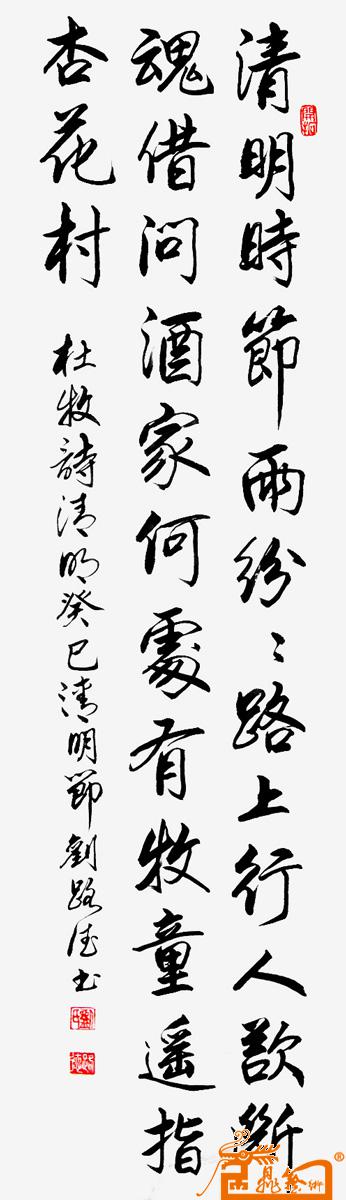 清明時節雨紛〻路上行人欲斷
魂借問酒家何處有牧童遥指
杏花村
杜牧詩清明癸巳清明節劉路德书